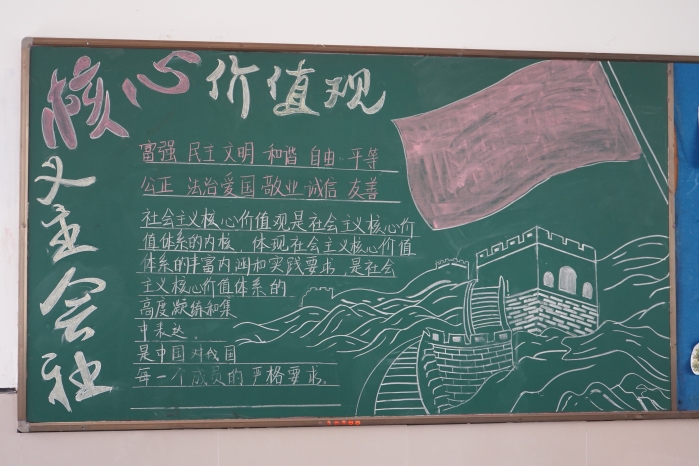 社会主义
核心价值观
富强 民主 文明 和谐 自由 平等
公正 法治 爱国 敬业 诚信 友善
社会主义核心价值观是社会主义核心价
值体系的内核，体现社会主义核心价值
体系的丰富内涵和实践要求，是社会
主义核心价值体系的
高度凝练和集
中表达。
是中国对我国
每一个成员的严格要求。